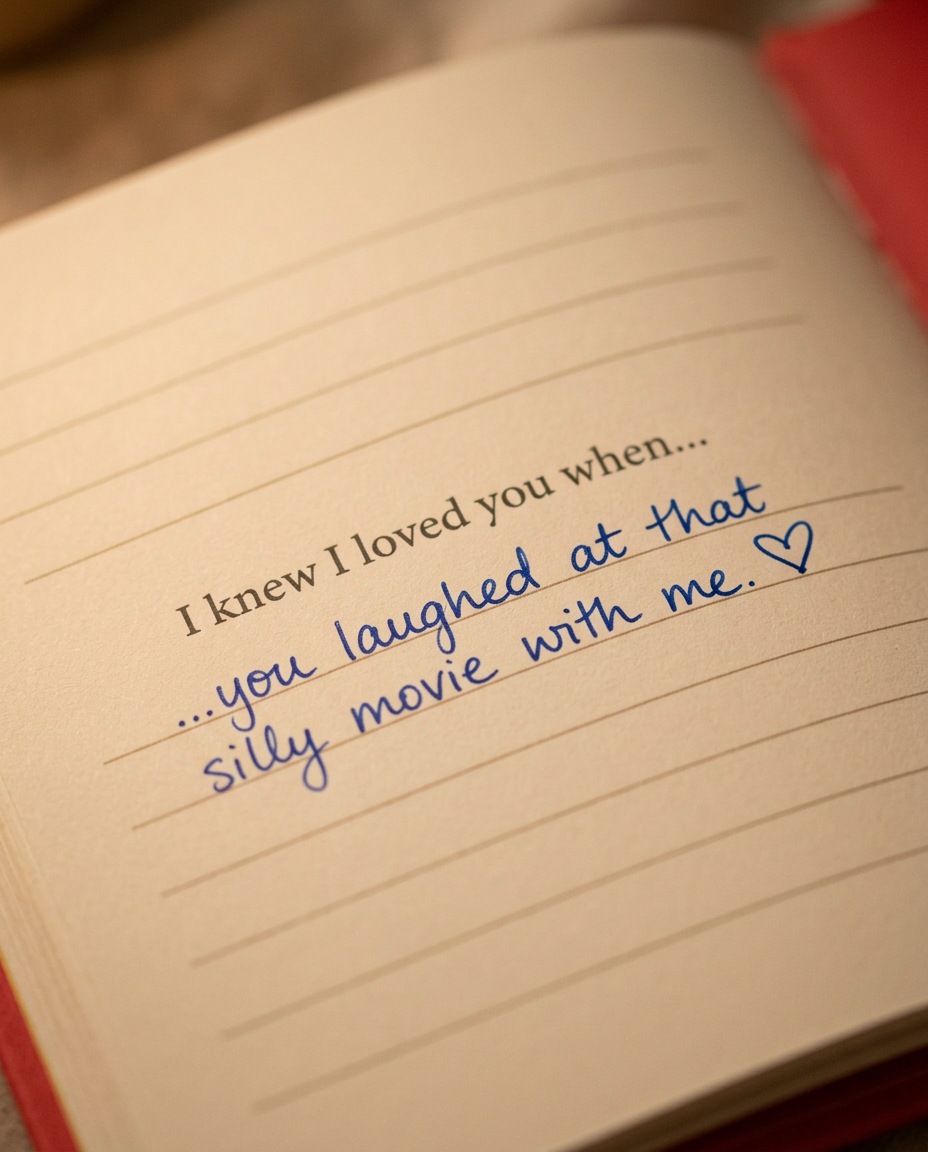 I knew I loved you when...
...you laughed at that
silly movie with me. ♡